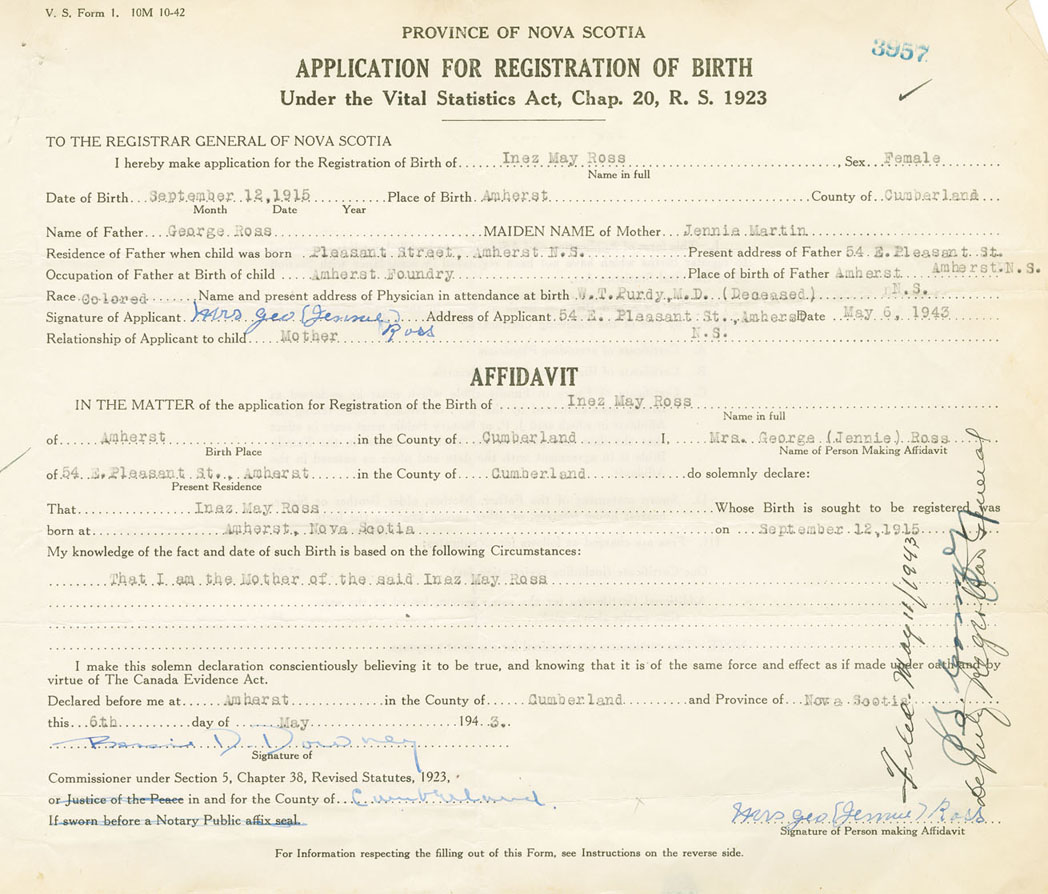 V. S. Form 1. 10M 10-42
PROVINCE OF NOVA SCOTIA
3957
APPLICATION FOR REGISTRATION OF BIRTH
Under the Vital Statistics Act, Chap. 20, R. S. 1923
TO THE REGISTRAR GENERAL OF NOVA SCOTIA
I hereby make application for the Registration of Birth of Inez May Ross, Sex Female
Name in full
Date of Birth September 12,1915 Place of Birth Amherst County of Cumberland
Month Date Year
Name of Father George Ross MAIDEN NAME of Mother Jennie Martin
Residence of Father when child was born Pleasant Street, Amherst N.S. Present address of Father 54 E.Pleasant St.
Amherst.N.S.
Occupation of Father at Birth of child Amherst Foundry Place of birth of Father Amherst
N.S.
Race Colored Name and present address of Physician in attendance at birth W.T.Purdy,M.D. (Deceased)
Signature of Applicant Mrs Geo (Jennie) Ross Address of Applicant 54 E. Pleasant St., Amherst Date May 6, 1943
N.S.
Relationship of Applicant to child Mother
AFFIDAVIT
IN THE MATTER of the application for Registration of the Birth of Inez May Ross
Name in full
of Amherst in the County of Cumberland I, Mrs. George (Jennie) Ross
Birth Place Name of Person Making Affidavit
of 54 E.Pleasant St., Amherst in the County of Cumberland do solemnly declare:
Present Residence
That Inez May Ross Whose Birth is sought to be registered was
born at Amherst, Nova Scotia on September 12,1915
My knowledge of the fact and date of such Birth is based on the following Circumstances:
That I am the Mother of the said Inez May Ross
I make this solemn declaration conscientiously believing it to be true, and knowing that it is of the same force and effect as if made under oath and by
virtue of The Canada Evidence Act.
Declared before me at Amherst in the County of Cumberland and Province of Nova Scotia
this 6th day of May 1943.
D. Downey
Signature of
Commissioner under Section 5, Chapter 38, Revised Statutes, 1923,
or Justice of the Peace in and for the County of Cumberland.
If sworn before a Notary Public affix seal.
Mrs Geo (Jennie) Ross
Signature of Person making Affidavit
For Information respecting the filling out of this Form, see Instructions on the reverse side.
Filed May 11/1943
Deputy Registrar General